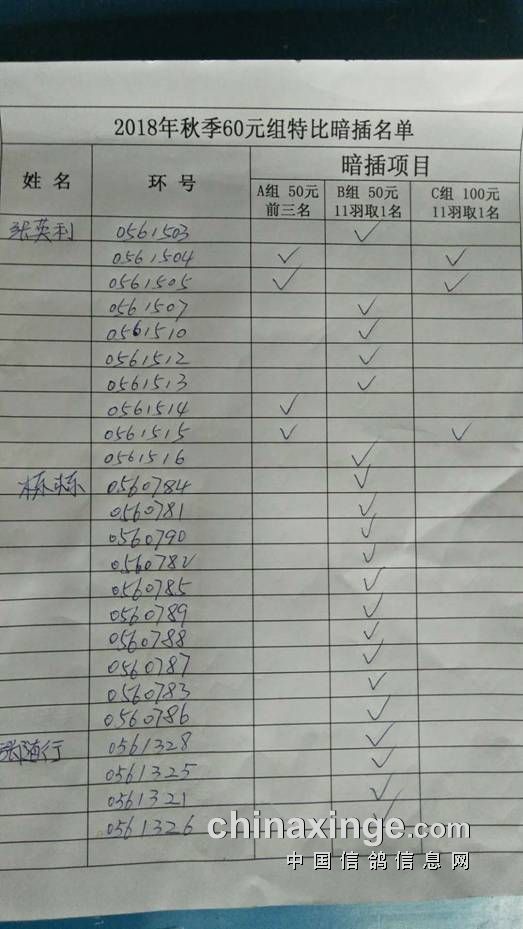 2018年秋季60元组特比暗插名单
姓 名 环 号 暗插项目
A组 50元 B组 50元 C组 100元
前三名 11羽取1名 11羽取1名
张英利 0561503 ✓
0561504 ✓ ✓
0561505 ✓ ✓
0561507 ✓
0561510 ✓
0561512 ✓
0561513 ✓
0561514 ✓
0561515 ✓ ✓
0561516 ✓
栋栋 0560784 ✓
0560781 ✓
0560790 ✓
0560782 ✓
0560785 ✓
0560789 ✓
0560788 ✓
0560787 ✓
0560783 ✓
0560786 ✓
张随行 0561328 ✓
0561325 ✓
0561321 ✓
0561326 ✓
chinaxinge.com
中国信鸽信息网